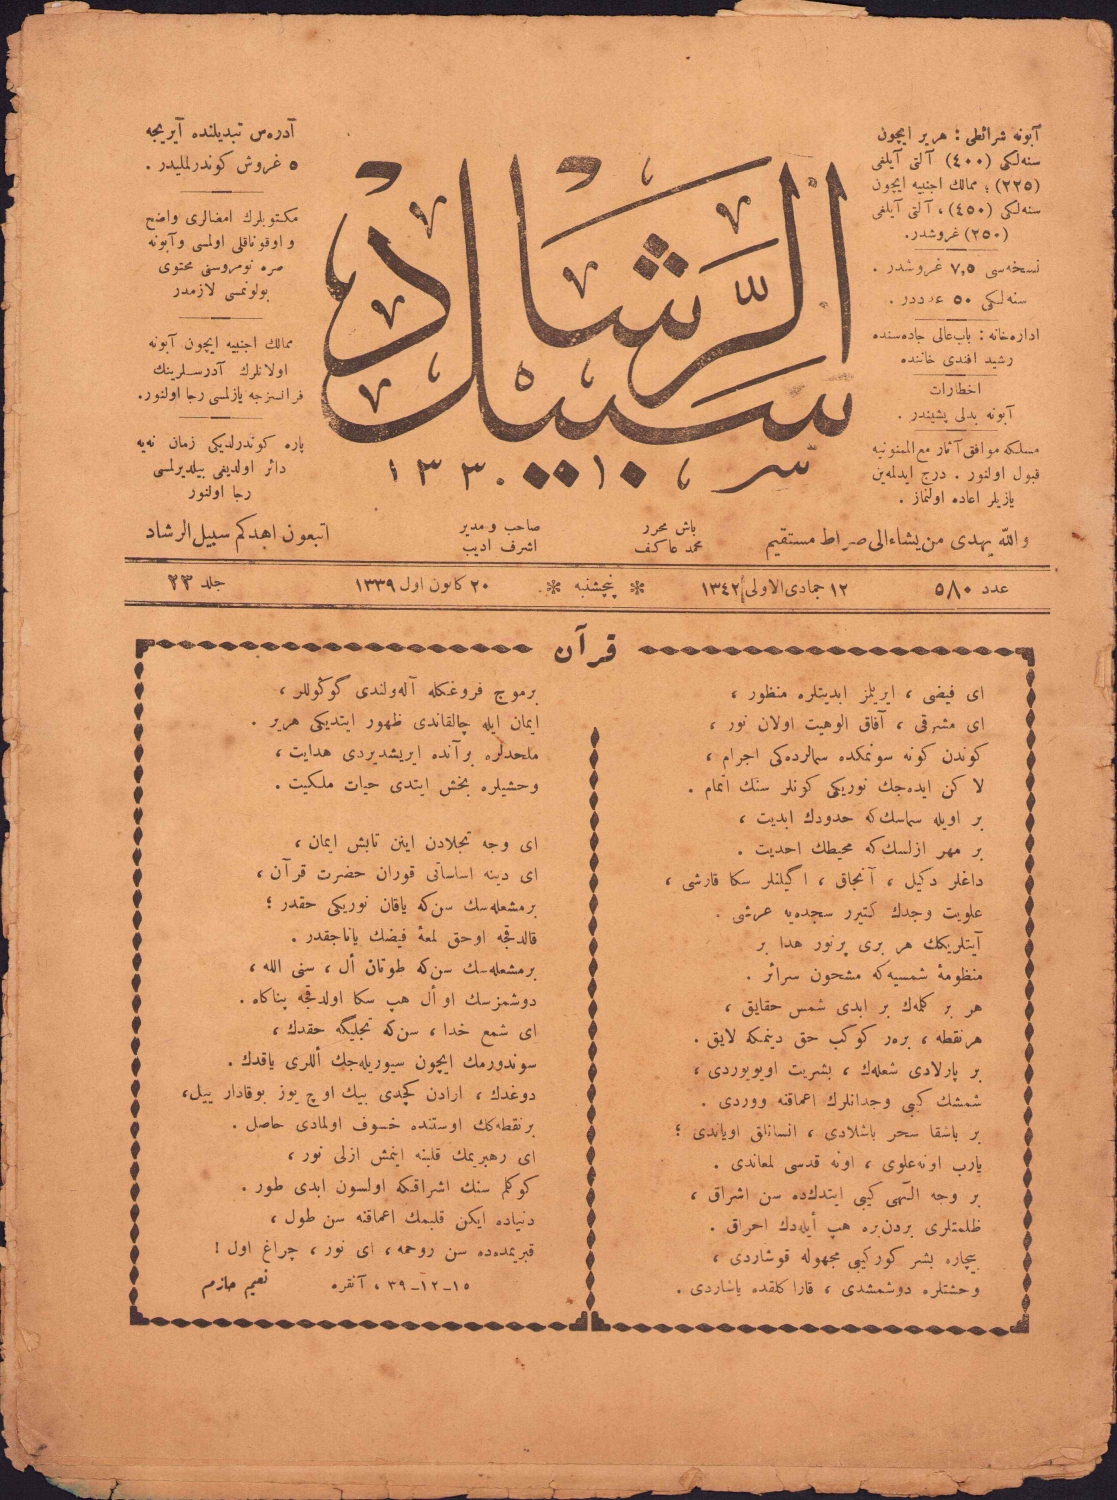 آبونه شرائطی : هر یر ایچون
سنه‌لكی (٤٠٠) آلتی آیلغی
(٢٢٥) ؛ ممالك اجنبیه ایچون
سنه‌لكی (٤٥٠) ، آلتی آیلغی
(٢٥٠) غروشدر .
نسخه‌سی ٧,٥ غروشدر .
سنه‌لكی ٥٠ عدددر .
اداره‌خانه : باب‌عالی جاده‌سنده
رشید افندی خاننده
اخطارات
آبونه بدلی پشیندر .
مسلكه موافق آثار مع الممنونیه
قبول اولنور . درج ایدلمه‌ین
یازیلر اعاده اولنماز .
سبیل الرشاد
١٣٣٠
آدره‌س تبدیلنده آیریجه
٥ غروش كوندرلملیدر .
مكتوبلرك امضالری واضح
و اوقوناقلی اولمسی و آبونه
صره نومروسنی محتوی
بولونمسی لازمدر
ممالك اجنبیه ایچون آبونه
اولانلرك آدرسلرینك
فرانسزجه یازلمسی رجا اولنور .
پاره كوندرلدیكی زمان نه‌یه
دائر اولدیغی بیلدیرلمسی
رجا اولنور
والله یهدی من یشاء الی صراط مستقیم
باش محرر
محمد عاكف
صاحب و مدیر
اشرف ادیب
اتبعون اهدكم سبیل الرشاد
عدد ٥٨٠
١٢ جمادی الاولی ١٣٤٢
* پنجشنبه *
٢٠ كانون اول ١٣٣٩
جلد ٢٣
قرآن
ای فیضی ، ایریلمز ابدیتلره منظور ،
ای مشرقی ، آفاق الوهیت اولان نور ،
كوندن كونه سونمكده سمالرده‌كی اجرام ،
لا كن ایده‌جك نوریكی كونلر سنك اتمام .
بر اویله سماسك‌كه حدودك ابدیت ،
بر مهر ازلسك‌كه محیطك احدیت .
داغلر دكیل ، آنجاق ، اكیلنلر سكا قارشی ،
علویت وجدك كتیرر سجده‌یه عرشی .
آیتلریكك هر بری پرنور هدا بر
منظومهٔ شمسیه‌كه مشحون سرائر .
هر بر كلمه‌ك بر ابدی شمس حقایق ،
هر نقطه ، برر كوكب حق دینمكه لایق .
بر پارلادی شعله‌ك ، بشریت اویویوردی ،
شمشك كبی وجدانلرك اعماقنه ووردی .
بر باشقا سحر باشلادی ، انسانلق اویاندی ؛
یارب او نه علوی ، او نه قدسی لمعاندی .
بر وجه الٓهی كیبی ایتدكده سن اشراق ،
ظلمتلری بردن‌بره هپ أیله‌دك احراق .
بیچاره بشر كور كیبی مجهوله قوشاردی ،
وحشتلره دوشمشدی ، قارا كلقده یاشاردی .
بر موج فروغكله آله‌ولندی كوكوللر ،
ایمان ایله چالقاندی ظهور ایتدیكی هر یر .
ملحدلره بر آنده ایریشدیردی هدایت ،
وحشیلره بخش ایتدی حیات ملكیت .
ای وجه تجلادن اینن تابش ایمان ،
ای دینه اساساتی قوران حضرت قرآن ،
بر مشعله‌سك سن‌كه یاقان نوریكی حقدر ؛
قالدقجه او حق لمعهٔ فیضك یاناجقدر .
بر مشعله‌سك سن‌كه طوتان أل ، سنی الله ،
دوشمزسك او أل هپ سكا اولدقجه پناكاه .
ای شمع خدا ، سن‌كه تجلیگه حقدك ،
سوندورمك ایچون سیوریله‌جك أللری یاقدك .
دوغدك ، ارادن كچدی بیك اوچ یوز بوقادار ییل ،
بر نقطه‌كك اوستنده خسوف اولمادی حاصل .
ای رهبریمك قلبنه اینمش ازلی نور ،
كوكلم سنك اشراقكه اولسون ابدی طور .
دنیاده ایكن قلبمك اعماقنه سن طول ،
قبریمده‌ده سن روحمه ، ای نور ، چراغ اول !
١٥-١٢-٣٩ ، آنقره
نعیم حازم